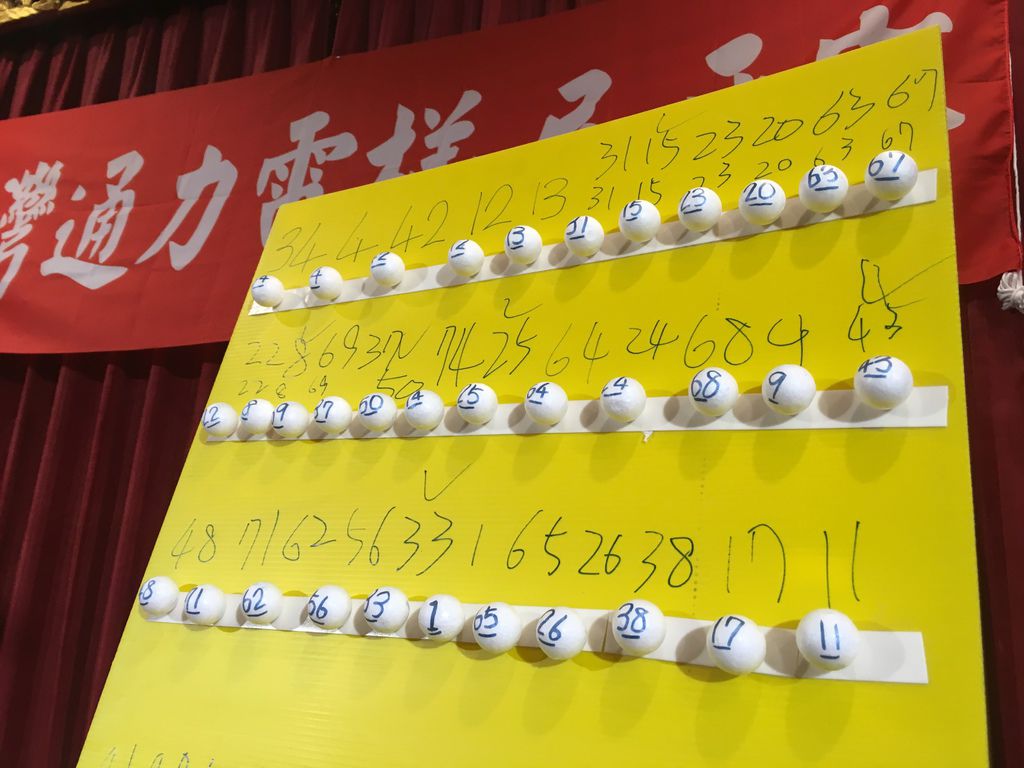 灣通力電梯
31 15 23 20 63 67
34 4 42 12 13 31 15 23 20 63 67
4 13 31 15 23 20 63 67
43
22 8 69 37 74 25 64 24 68 9
22 8 69 50
9 50 64 68 9 43
48 71 62 56 33 1 65 26 38 17 11
62 56 33 1 65 26 38 17 11